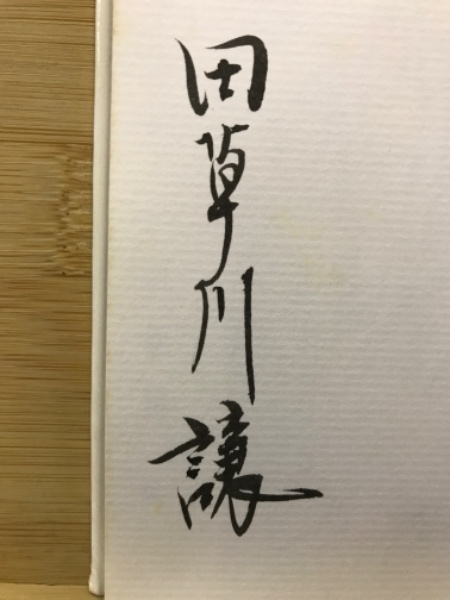 田草川譲